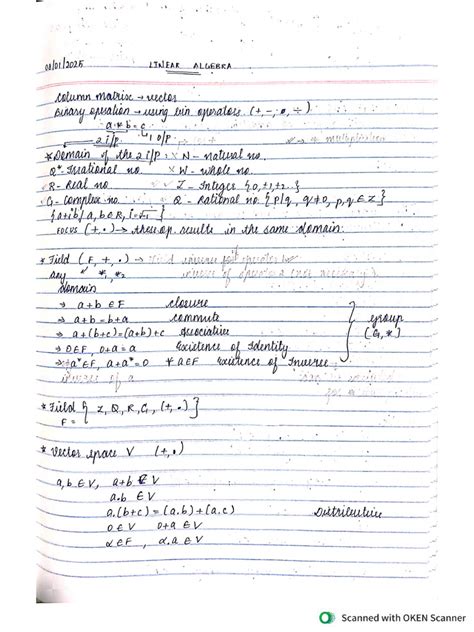 08/01/2025 LINEAR ALGEBRA
Column matrix → vector
Binary operation → using bin operators (+, -, •, ÷)
a * b = c
2 I/P 1 O/P
* Domain of the 2 I/P: × N - natural no.
Q* - Irrational no. × W - whole no.
R - Real no. × Z - Integer {0, ±1, ±2..}
C - Complex no. Q - Rational no. {p/q, q≠0, p,q ∈ Z}
{a+ib / a,b ∈ R, i=√-1}
FOCUS (+, •) → these op. results in the same domain.
* Field (F, +, •) →
any *₁, *₂
domain
⇒ a+b ∈ F closure
⇒ a+b = b+a commute
⇒ a+(b+c) = (a+b)+c associative
⇒ 0 ∈ F, 0+a = a Existence of Identity
⇒ a* ∈ F, a+a* = 0 ∀ a ∈ F Existence of Inverse
group
(G, *)
inverse of a
* Field { Z, Q, R, C, (+, •) }
F =
* Vector space V (+, •)
a, b ∈ V, a+b ∈ V
a.b ∈ V
a.(b+c) = (a.b)+(a.c) Distributive
0 ∈ V 0+a ∈ V
α ∈ F, α.a ∈ V
Scanned with OKEN Scanner